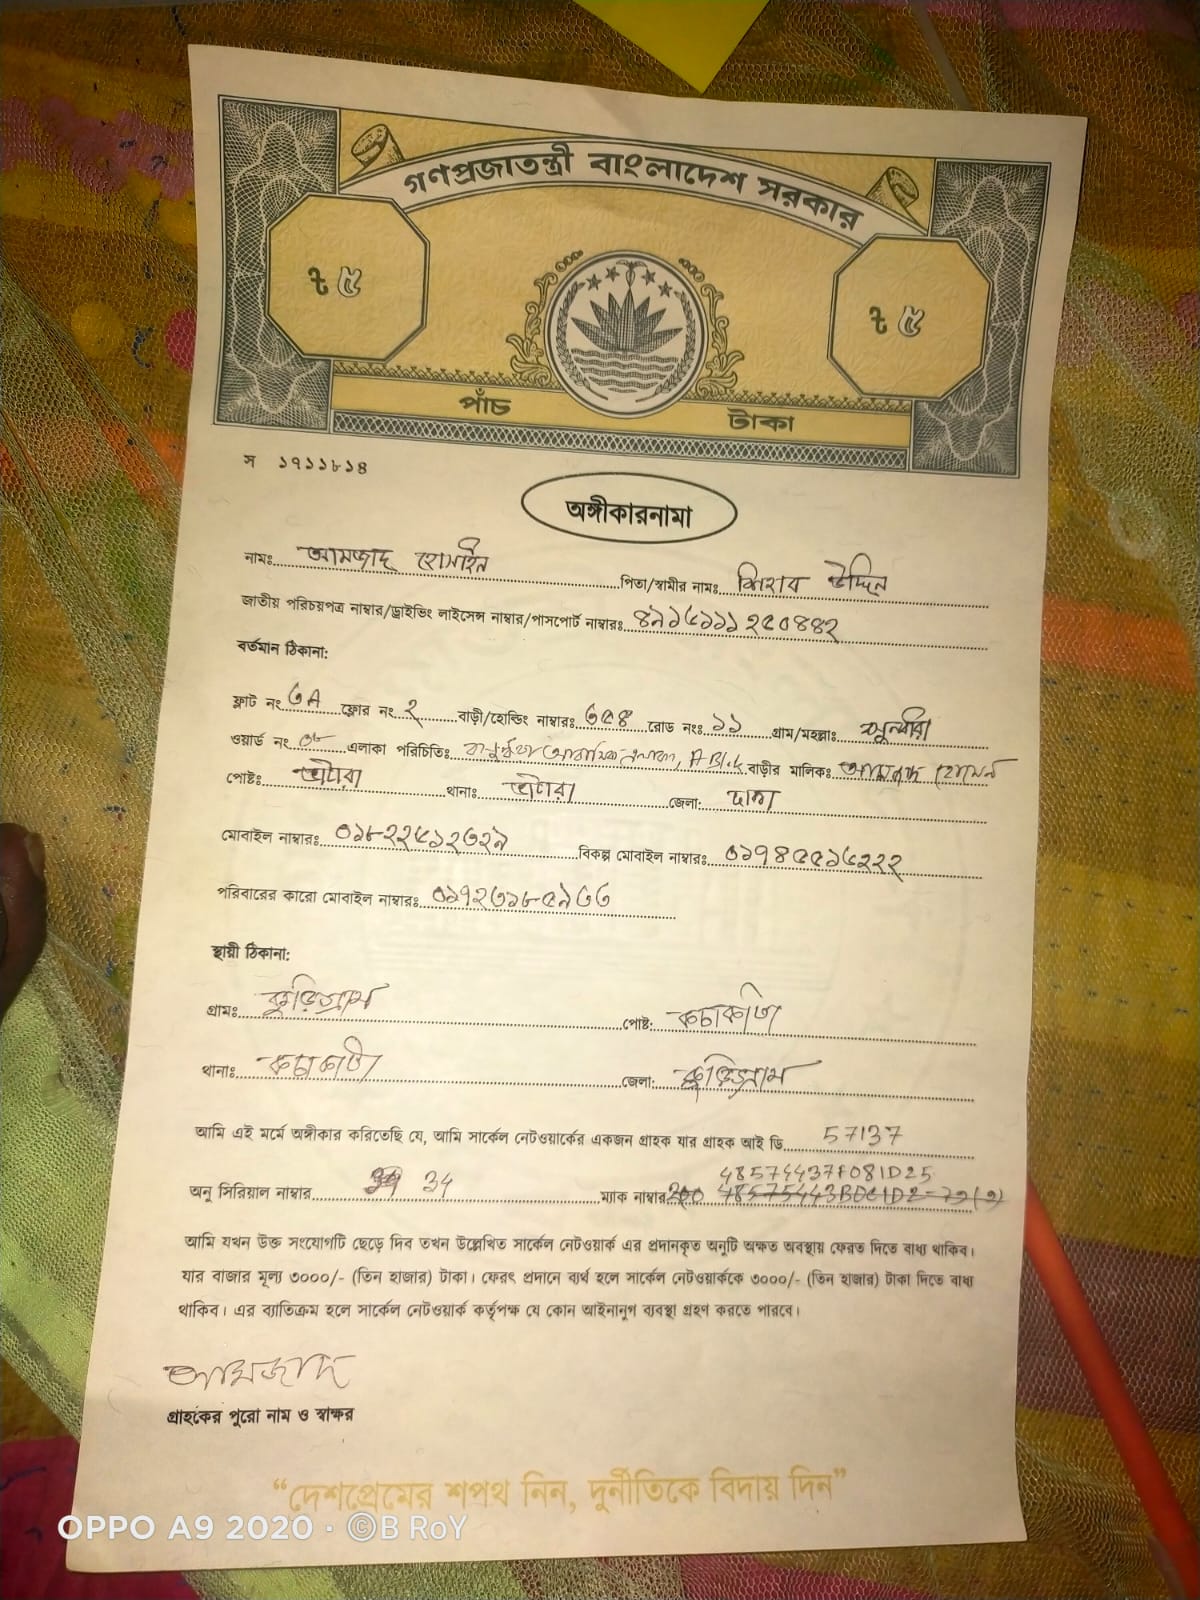 গণপ্রজাতন্ত্রী বাংলাদেশ সরকার
৳ ৫ ৳ ৫
পাঁচ টাকা
স ১৭১১৮১৪
অঙ্গীকারনামা
নামঃ আমজাদ হোসাইন পিতা/স্বামীর নামঃ শিহাব উদ্দিন
জাতীয় পরিচয়পত্র নাম্বার/ড্রাইভিং লাইসেন্স নাম্বার/পাসপোর্ট নাম্বারঃ ৪৯১৫১১১২৫০৪৪২
বর্তমান ঠিকানা:
ফ্লাট নং ৩A ফ্লোর নং ২ বাড়ী/হোল্ডিং নাম্বারঃ ৩৫৪ রোড নংঃ ১১ গ্রাম/মহল্লাঃ
ওয়ার্ড নং ০৮ এলাকা পরিচিতিঃ বসুন্ধরা আবাসিক এলাকা, A Block বাড়ীর মালিকঃ আমজাদ হোসেন
পোষ্টঃ ভাটারা থানাঃ ভাটারা জেলা: ঢাকা
মোবাইল নাম্বারঃ ০১৮২২৫১২৩২৯ বিকল্প মোবাইল নাম্বারঃ ০১৭৪৫৫১৫২২২
পরিবারের কারো মোবাইল নাম্বারঃ ০১৭২৩১৮৫৯৩৩
স্থায়ী ঠিকানা:
গ্রামঃ কুড়িগ্রাম পোষ্ট: কচাকাটা
থানাঃ কচাকাটা জেলা: কুড়িগ্রাম
আমি এই মর্মে অঙ্গীকার করিতেছি যে, আমি সার্কেল নেটওয়ার্কের একজন গ্রাহক যার গ্রাহক আই ডি 57137
48574437F081D25
অনু সিরিয়াল নাম্বার 34 ম্যাক নাম্বারঃ
আমি যখন উক্ত সংযোগটি ছেড়ে দিব তখন উল্লেখিত সার্কেল নেটওয়ার্ক এর প্রদানকৃত অনুটি অক্ষত অবস্থায় ফেরত দিতে বাধ্য থাকিব।
যার বাজার মূল্য ৩০০০/- (তিন হাজার) টাকা। ফেরৎ প্রদানে ব্যর্থ হলে সার্কেল নেটওয়ার্ককে ৩০০০/- (তিন হাজার) টাকা দিতে বাধ্য
থাকিব। এর ব্যতিক্রম হলে সার্কেল নেটওয়ার্ক কর্তৃপক্ষ যে কোন আইনানুগ ব্যবস্থা গ্রহণ করতে পারবে।
আমজাদ
গ্রাহকের পুরো নাম ও স্বাক্ষর
“দেশপ্রেমের শপথ নিন, দুর্নীতিকে বিদায় দিন”
OPPO A9 2020 · ©B RoY